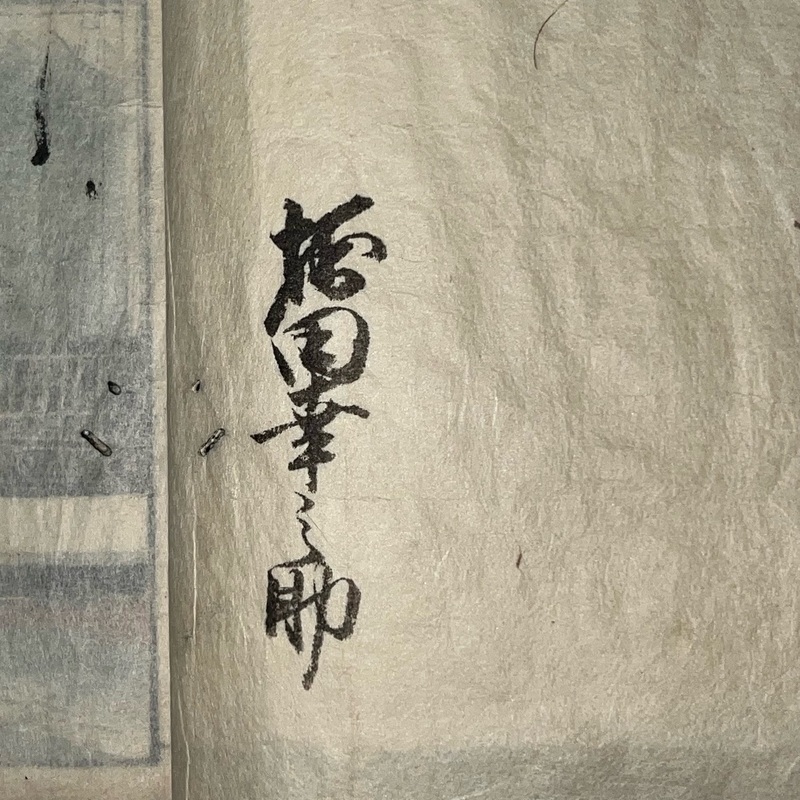 橋田幸之助